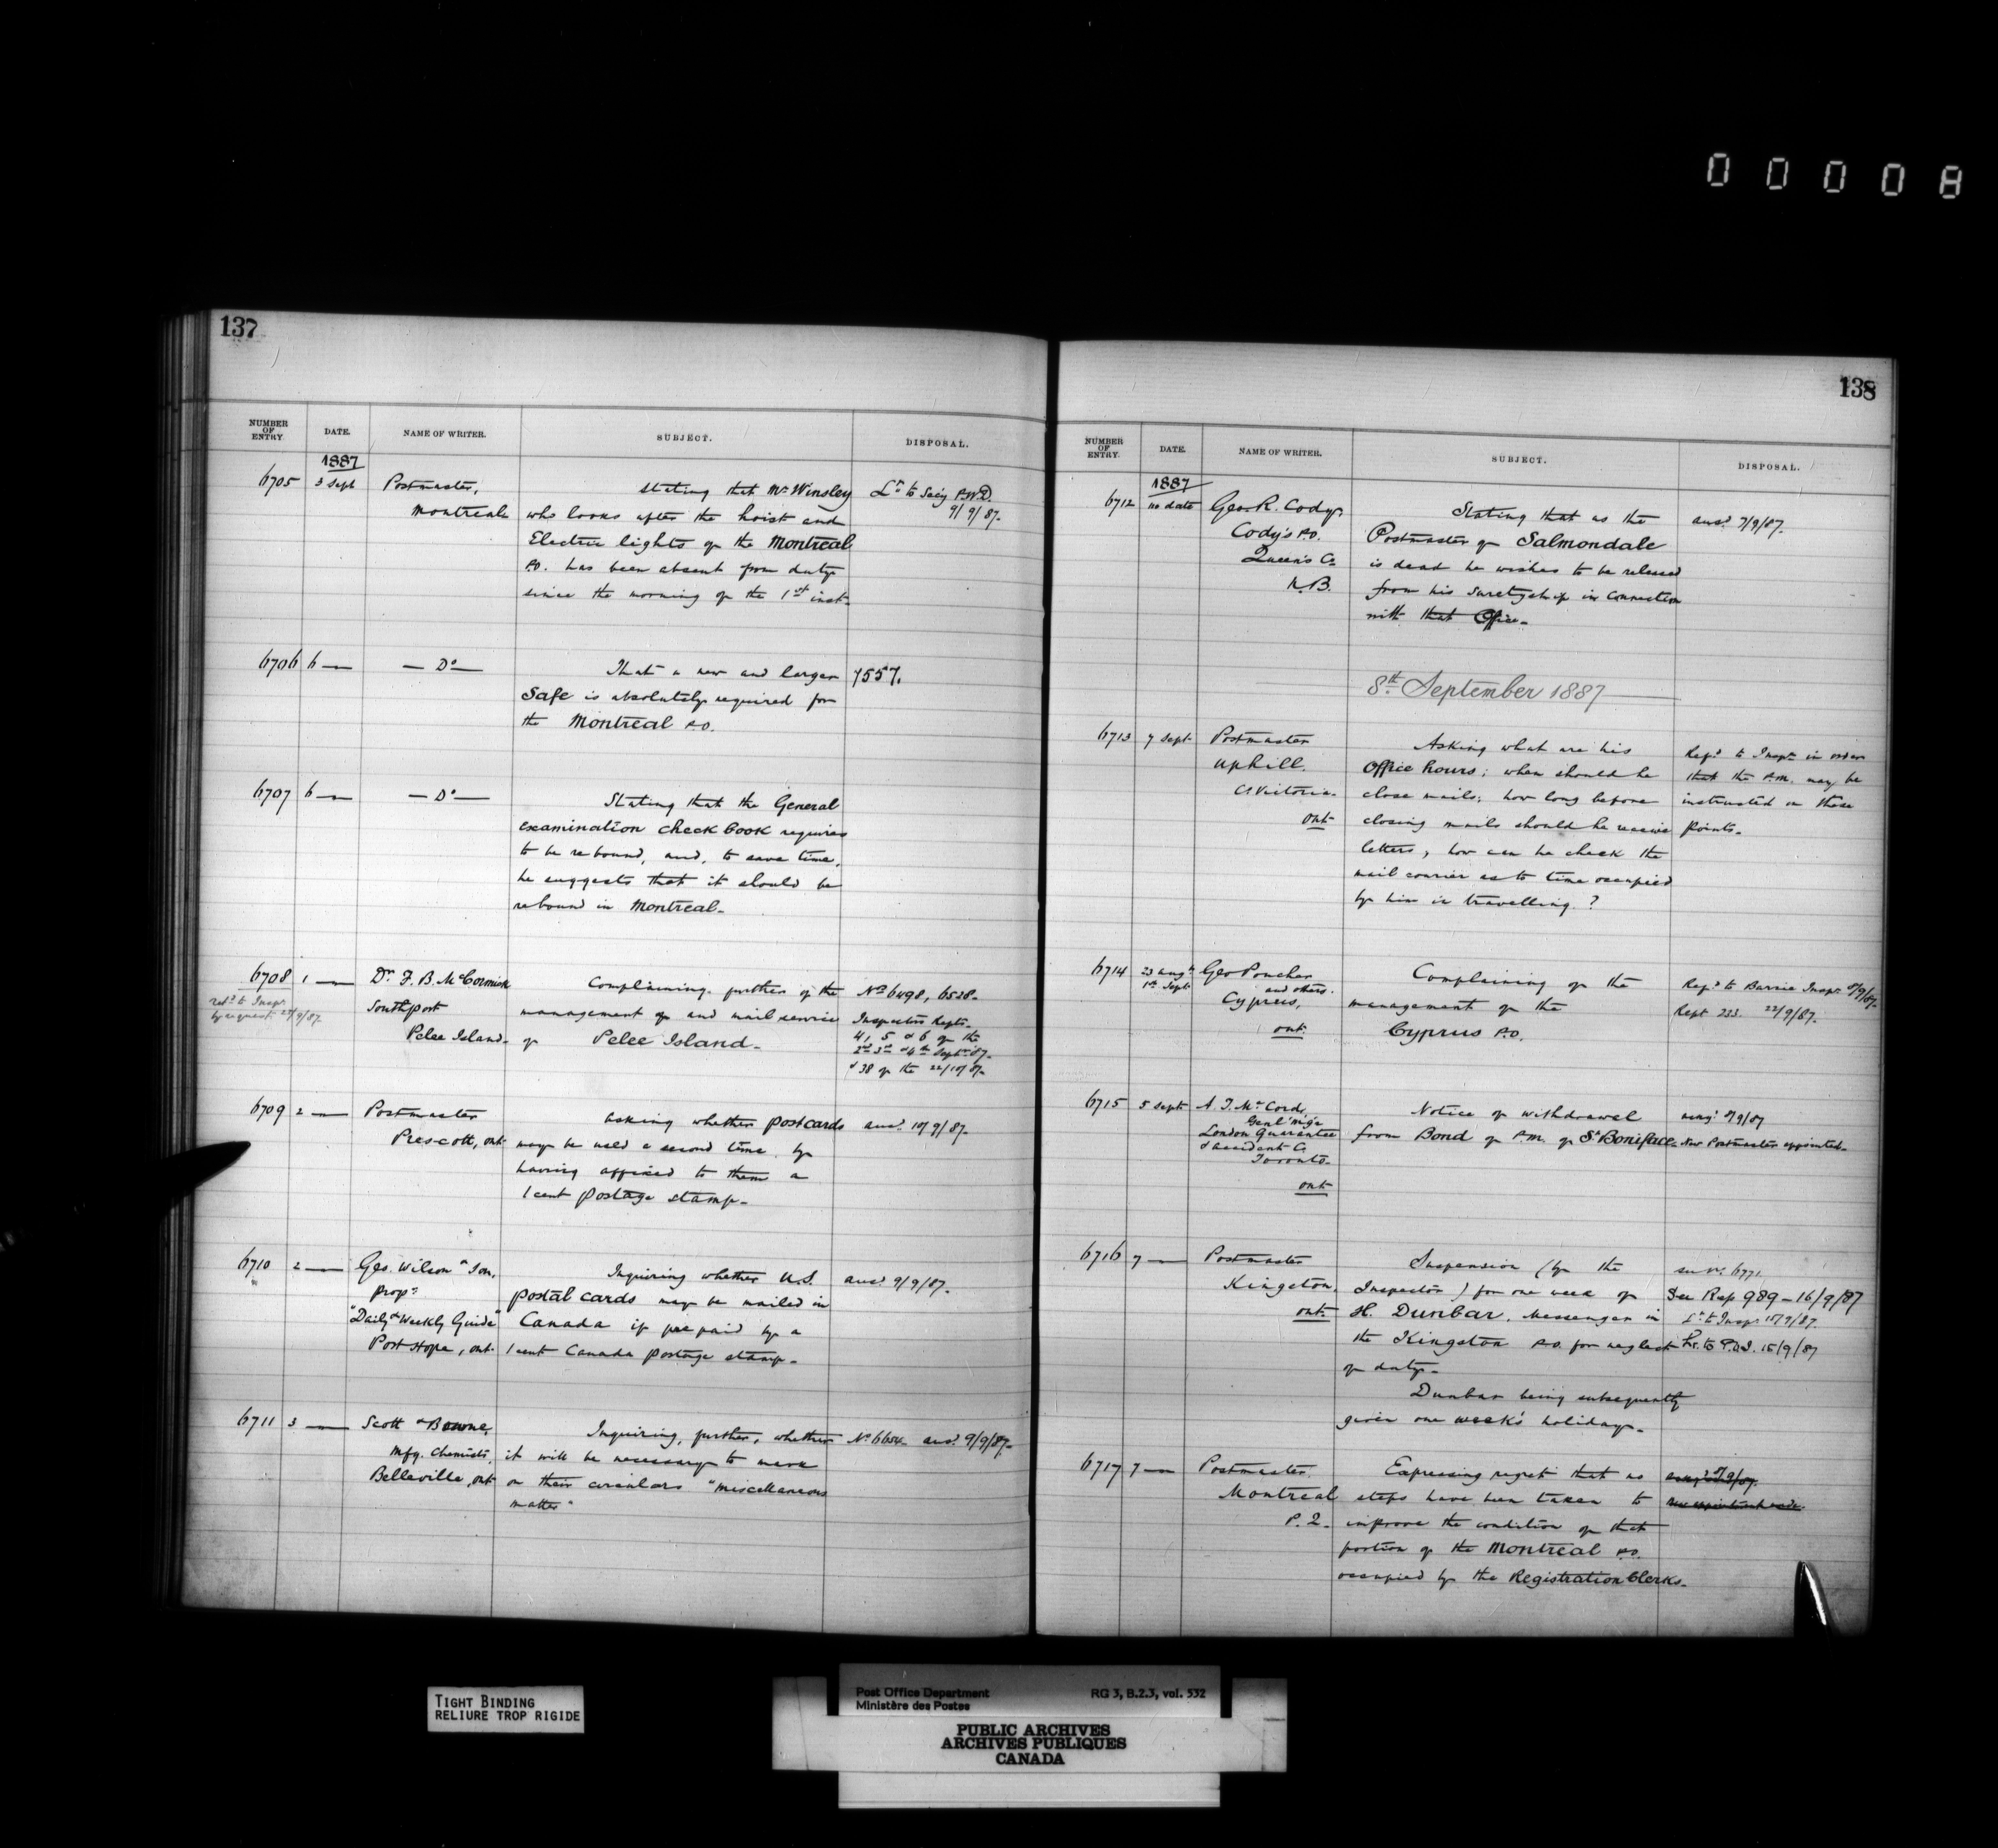 0 0 0 0 8
137
NUMBER OF ENTRY. DATE. NAME OF WRITER. SUBJECT. DISPOSAL.
1887
6705 3 Sept Postmaster, Stating that Mr Winsley Lr to Secy P.W.D.
Montreal who looks after the hoist and 9/9/87.
Electric lights of the Montreal
P.O. has been absent from duty
since the morning of the 1st inst.
6706 6 — — Do — That a new and larger 7557.
Safe is absolutely required for
the Montreal P.O.
6707 6 — — Do — Stating that the General
Examination Check Book requires
to be rebound, and, to save time,
he suggests that it should be
rebound in Montreal.
6708 1 — Dr. F. B. McCormick Complaining further of the No 6498, 6528.
refd to Inspr Southport management of and mail service Inspectors Repts.
by request 22/9/87. Pelee Island. of Pelee Island. 4, 5 & 6 of the
2nd 3rd & 4th Sept. 87.
& 38 of the 22/10/87.
6709 2 — Postmaster asking whether postcards ansd 10/9/87.
Prescott, Ont. may be used a second time, by
having affixed to them a
1 cent postage stamp.
6710 2 — Geo. Wilson & Son, Inquiring whether U.S. ansd 9/9/87.
Props postal cards may be mailed in
"Daily & Weekly Guide" Canada if prepaid by a
Port Hope, Ont. 1 cent Canada postage stamp.
6711 3 — Scott & Bowne, Inquiring, further, whether No 6654. ansd 9/9/87.
Mfg. Chemists, it will be necessary to mark
Belleville, Ont on their circulars "miscellaneous
matter"
138
NUMBER OF ENTRY. DATE. NAME OF WRITER. SUBJECT. DISPOSAL.
1887
6712 no date Geo. R. Cody, Stating that as the ansd 7/9/87.
Cody's P.O. Postmaster of Salmondale
Queen's Co. is dead he wishes to be released
N.B. from his suretyship in connection
with that Office.
8th September 1887
6713 7 Sept Postmaster Asking what are his Refd to Inspr in order
Uphill. Office hours; when should he that the P.M. may be
Co Victoria. close mails; how long before instructed on these
Ont closing mails should he receive points.
letters, how can he check the
mail courier as to time occupied
by him in travelling ?
6714 23 Augt Geo Poucher Complaining of the Refd to Barrie Inspr 8/9/87.
1st Sept and others. management of the Rept 233. 22/9/87.
Cyprus, Cyprus P.O.
Ont
6715 5 Sept A. T. McCord, Notice of withdrawal 8/9/87
Genl Mgr from Bond of P.M. of St Boniface. New Postmaster appointed.
London Guarantee
& Accident Co
Toronto.
Ont
6716 7 — Postmaster Suspension (by the See No. 6771
Kingston, Inspector) for one week of See Rep 989 – 16/9/87
Ont. H. Dunbar, Messenger in Lr to Inspr 15/9/87.
the Kingston P.O. for neglect 15/9/87
of duty.
Dunbar being subsequently
given one week's holiday.
6717 7 — Postmaster Expressing regret that no 8/9/87.
Montreal steps have been taken to
P.Q. improve the condition of that
portion of the Montreal P.O.
occupied by the Registration Clerks.
TIGHT BINDING
RELIURE TROP RIGIDE
Post Office Department RG 3, B.2.3, vol. 532
Ministère des Postes
PUBLIC ARCHIVES
ARCHIVES PUBLIQUES
CANADA